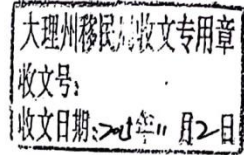 大理州移民局收文专用章
收文号：
收文日期：年11月2日